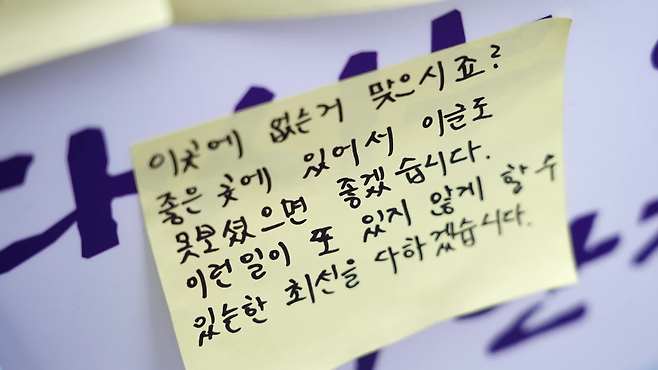 이곳에 없는거 맞으시죠?
좋은 곳에 있어서 이글도
못보셨으면 좋겠습니다.
이런일이 또 있지 않게 할 수
있는한 최선을 다하겠습니다.